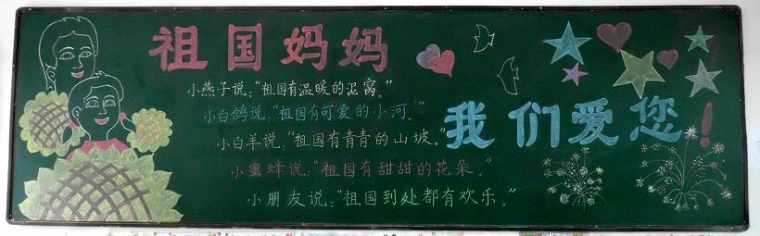 祖国妈妈
小燕子说："祖国有温暖的泥窝。"
小白鸽说："祖国有可爱的小河。"
小白羊说："祖国有青青的山坡。"
小蜜蜂说："祖国有甜甜的花朵。"
小朋友说："祖国到处都有欢乐。"
我们爱您！